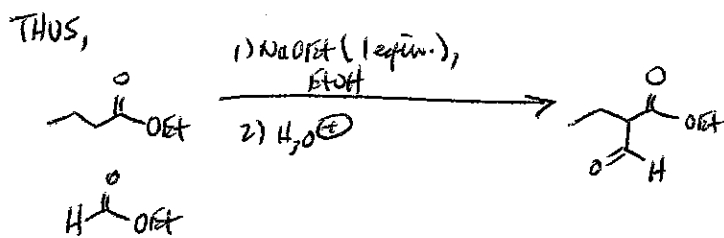 THUS,
1) NaOEt (1 equiv.),
EtOH
2) H₃O⊕
O
OEt
O
H OEt
O
OEt
O H